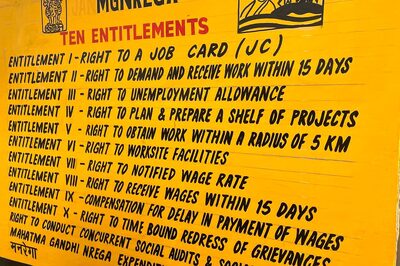 MGNREGA
TEN ENTITLEMENTS
ENTITLEMENT I - RIGHT TO A JOB CARD (JC)
ENTITLEMENT II - RIGHT TO DEMAND AND RECEIVE WORK WITHIN 15 DAYS
ENTITLEMENT III - RIGHT TO UNEMPLOYMENT ALLOWANCE
ENTITLEMENT IV - RIGHT TO PLAN & PREPARE A SHELF OF PROJECTS
ENTITLEMENT V - RIGHT TO OBTAIN WORK WITHIN A RADIUS OF 5 KM
ENTITLEMENT VI - RIGHT TO WORKSITE FACILITIES
ENTITLEMENT VII - RIGHT TO NOTIFIED WAGE RATE
ENTITLEMENT VIII - RIGHT TO RECEIVE WAGES WITHIN 15 DAYS
ENTITLEMENT IX - COMPENSATION FOR DELAY IN PAYMENT OF WAGES
ENTITLEMENT X - RIGHT TO TIME BOUND REDRESS OF GRIEVANCES
RIGHT TO CONDUCT CONCURRENT SOCIAL AUDITS &
MAHATMA GANDHI NREGA
मनरेगा